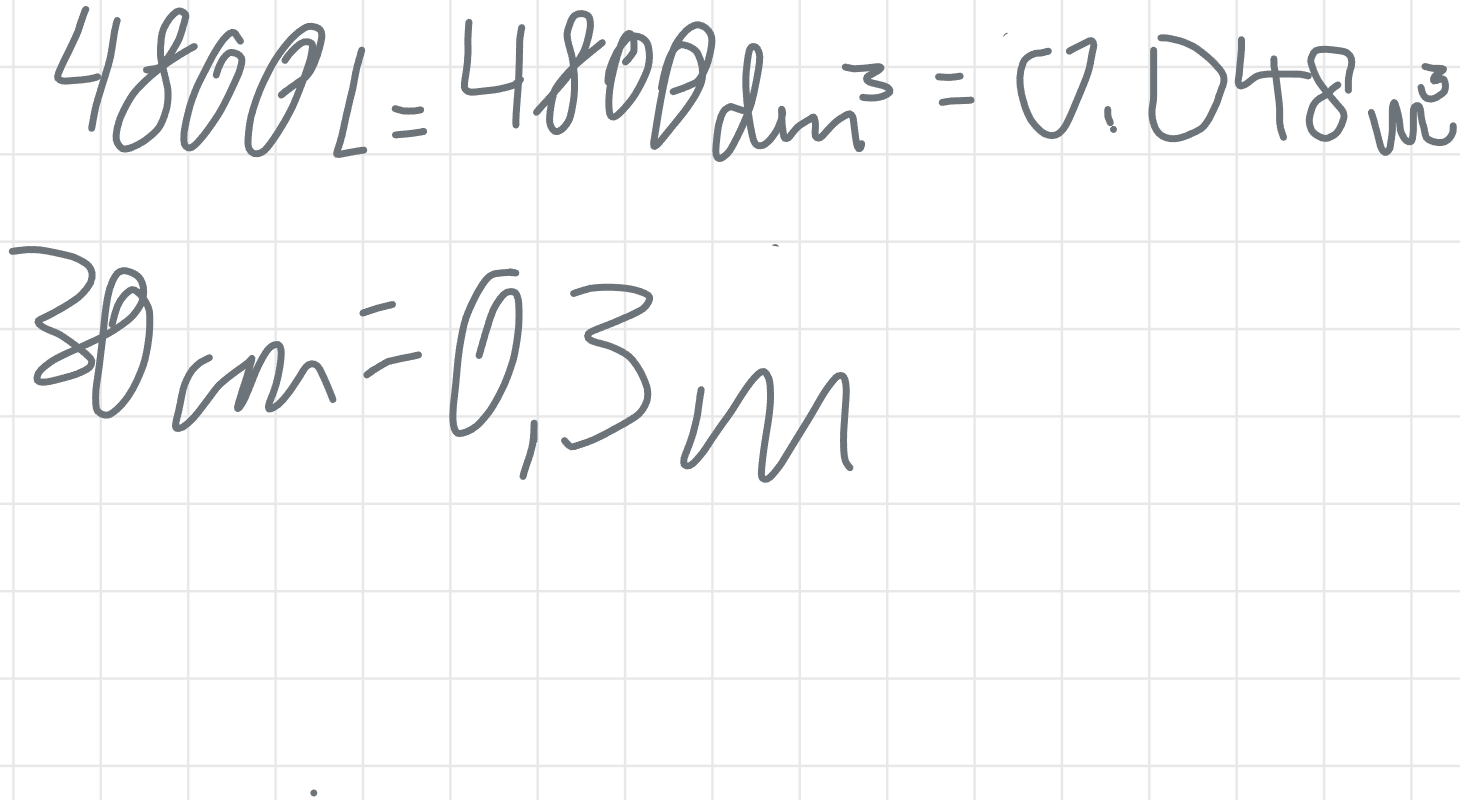 4800L = 4800dm³ = 0.048m³
30cm = 0,3m